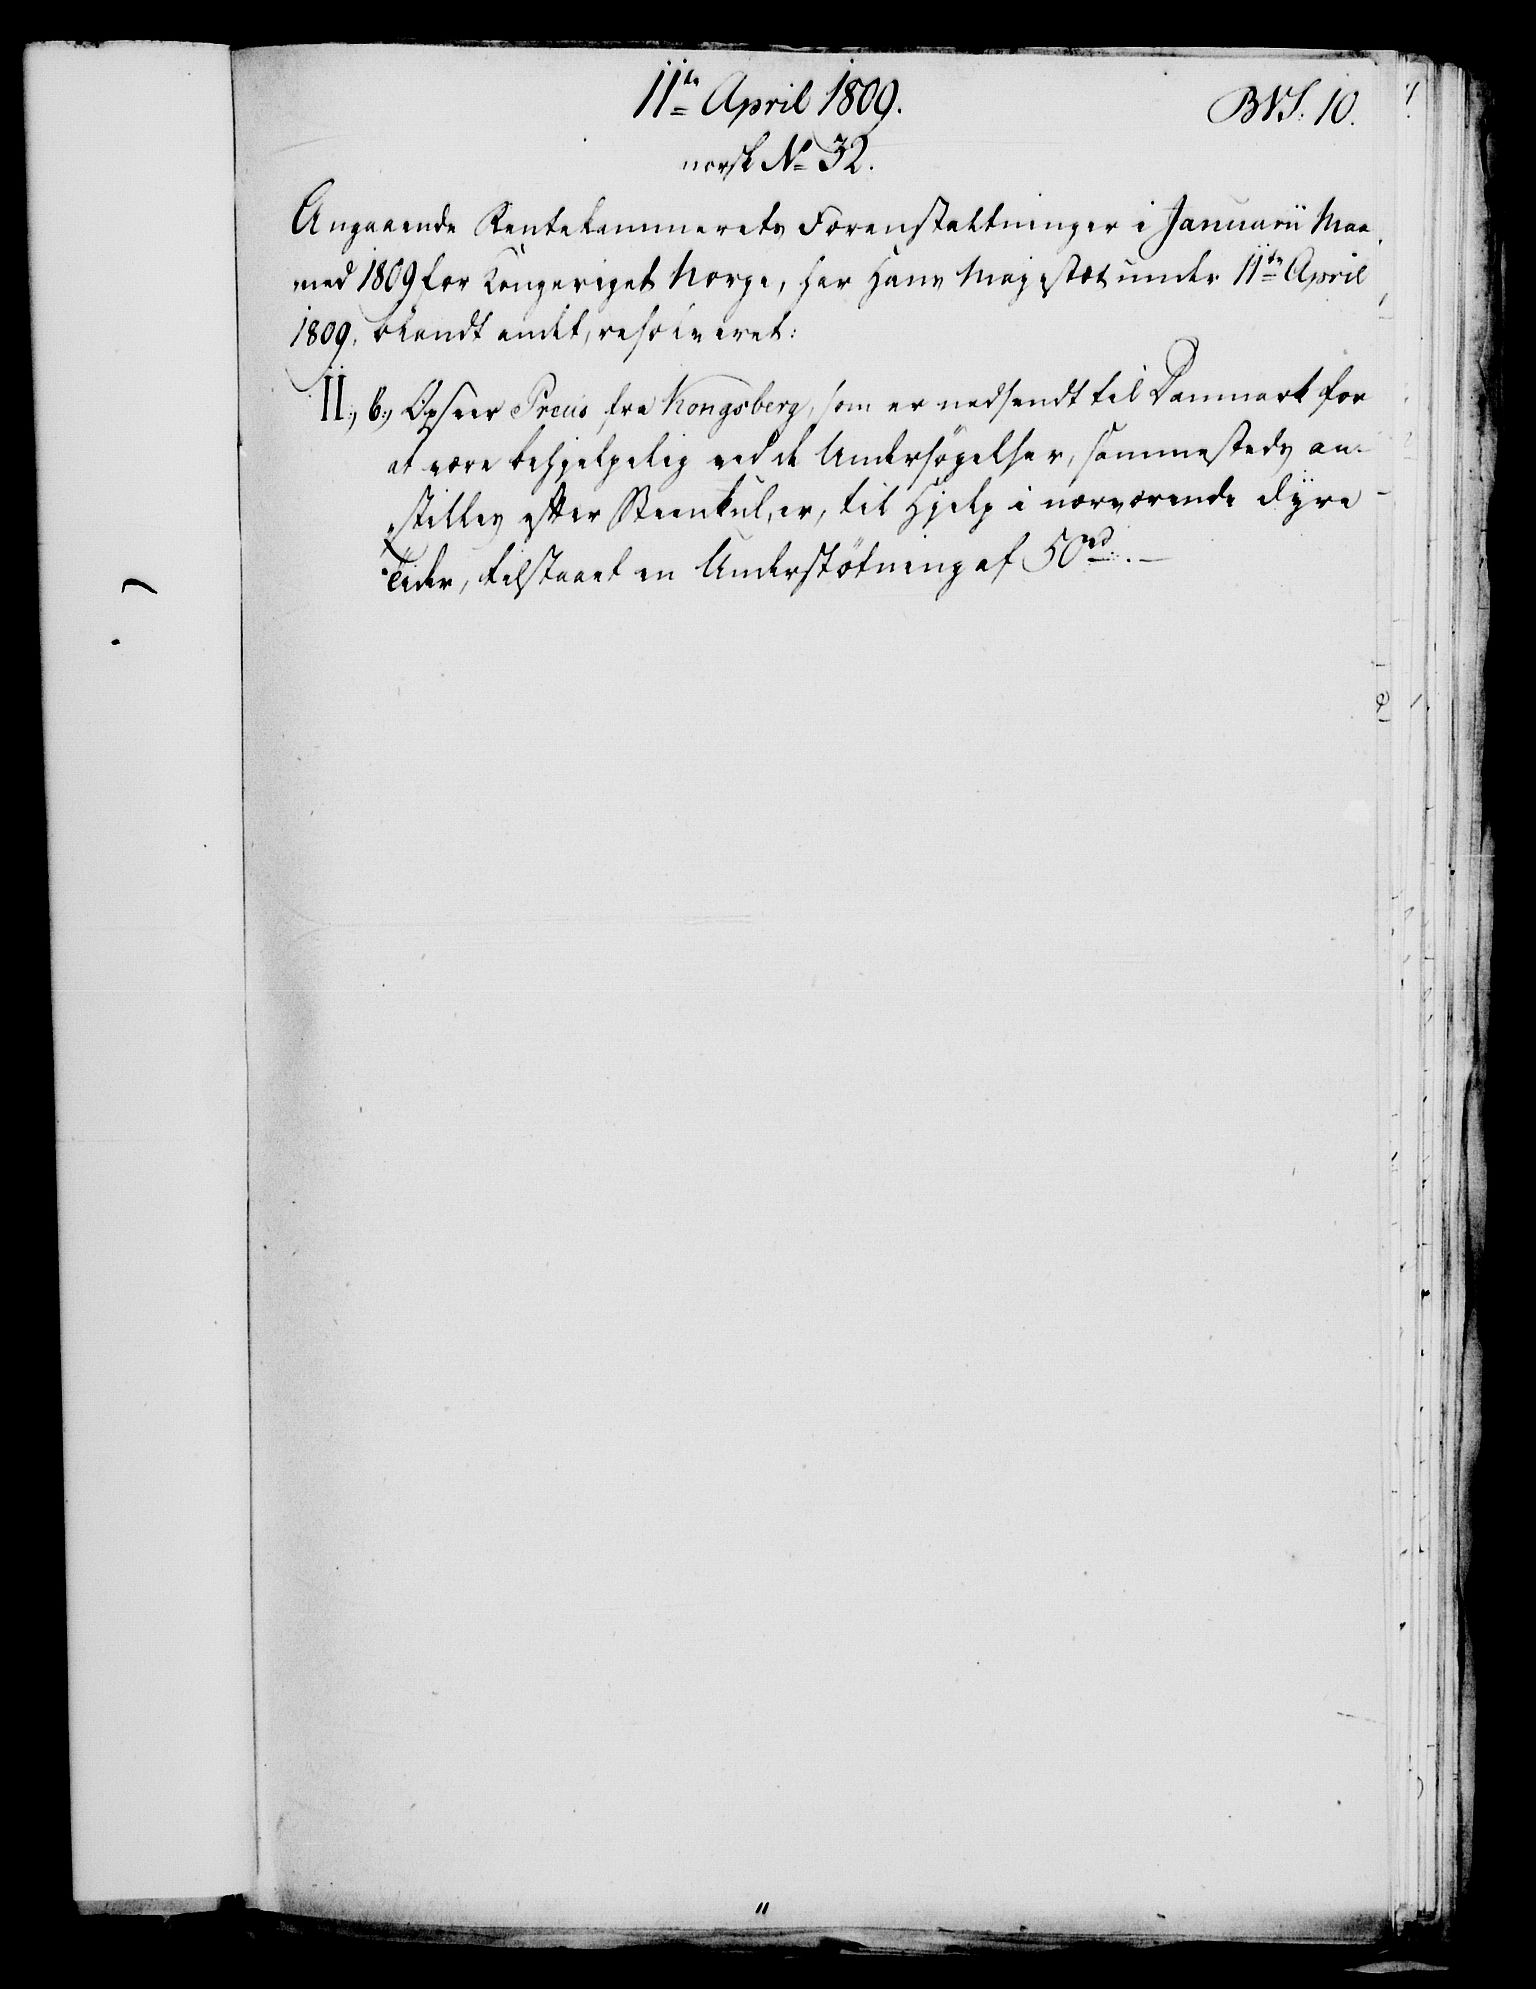 11te April 1809.
BVS: 10.
norsk No 32.
Angaaende Rentekammerets Foranstaltninger i Januarii Maa-
ned 1809 for Kongeriget Norge, har Hans Majestæt under 11te April
1809, blandt andet, resolveret:
II., 6., Opseer Preus fra Kongsberg, som er nedsendt til Danmark for
at være behjelpelig ved de Undersøgelser, sammesteds an-
stilles efter Steenkul, er, til Hjelp i nærværende dyre
Tider, tilstaaet en Understøtning af 50rd. —